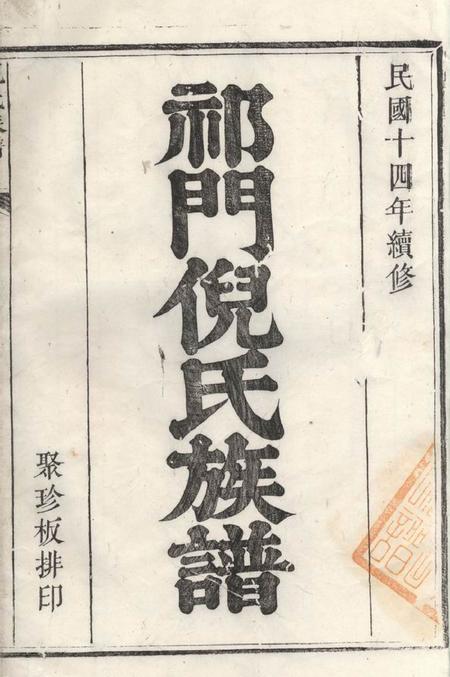 民國十四年續修
祁門倪氏族譜
聚珍板排印